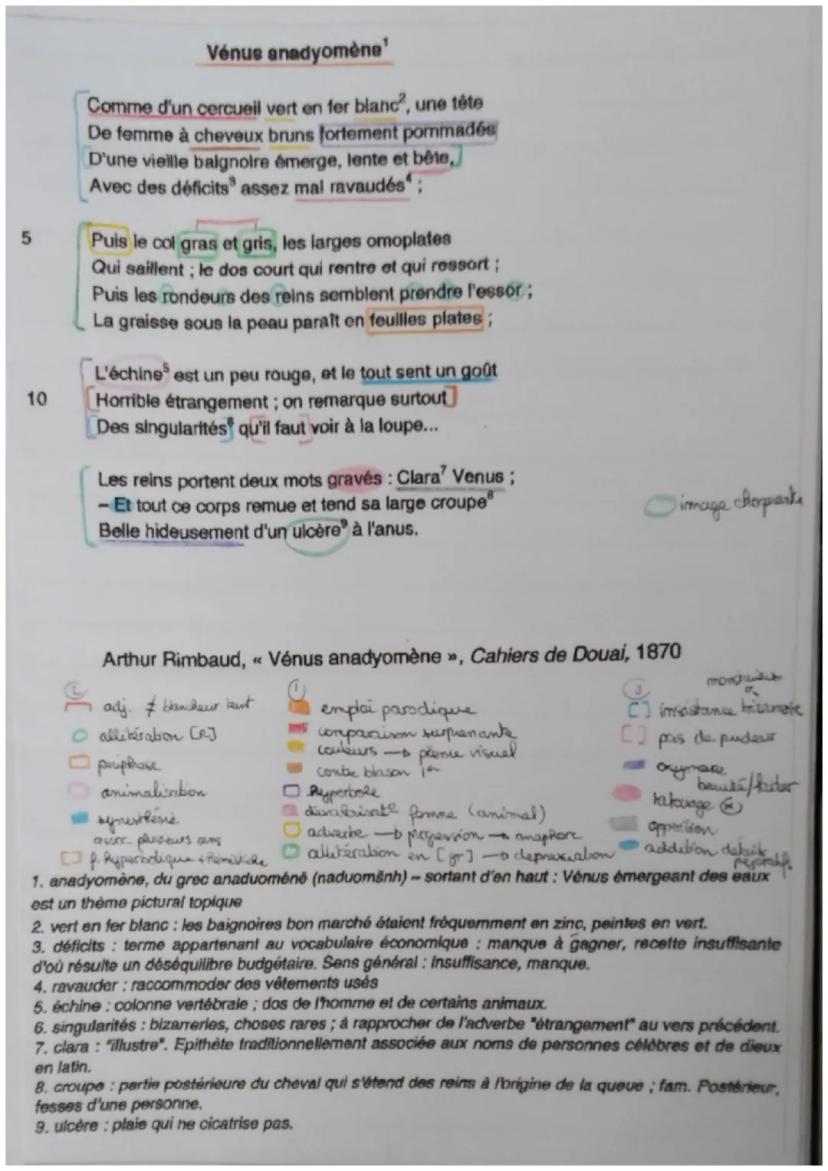 Vénus anadyomène¹
Comme d'un cercueil vert en fer blanc², une tête
De femme à cheveux bruns fortement pommadés
D'une vieille baignoire émerge, lente et bête,
Avec des déficits³ assez mal ravaudés⁴ ;
5 Puis le col gras et gris, les larges omoplates
Qui saillent ; le dos court qui rentre et qui ressort ;
Puis les rondeurs des reins semblent prendre l'essor ;
La graisse sous la peau paraît en feuilles plates ;
L'échine⁵ est un peu rouge, et le tout sent un goût
10 Horrible étrangement ; on remarque surtout
Des singularités⁶ qu'il faut voir à la loupe...
Les reins portent deux mots gravés : Clara⁷ Venus ;
– Et tout ce corps remue et tend sa large croupe⁸
image
Belle hideusement d'un ulcère⁹ à l'anus.
Arthur Rimbaud, « Vénus anadyomène », Cahiers de Douai, 1870
2
adj. ≠ blancheur
allitération [R]
périphrase
animalisation
synesthésie
avec plusieurs sens
p. hyperbolique
1
emploi parodique
comparaison surprenante
couleurs → visuel
contre blason
Hyperbole
femme (animal)
adverbe → progression → anaphore
allitération en [gr] → dépréciation
3
insistance bizarrerie
pas de pudeur
oxymore
beauté/laideur
tatouage
opposition
addition détails péjoratifs
1. anadyomène, du grec anaduoménê (naduomšnh) – sortant d'en haut : Vénus émergeant des eaux
est un thème pictural topique
2. vert en fer blanc : les baignoires bon marché étaient fréquemment en zinc, peintes en vert.
3. déficits : terme appartenant au vocabulaire économique : manque à gagner, recette insuffisante
d'où résulte un déséquilibre budgétaire. Sens général : Insuffisance, manque.
4. ravauder : raccommoder des vêtements usés
5. échine : colonne vertébrale ; dos de l'homme et de certains animaux.
6. singularités : bizarreries, choses rares ; à rapprocher de l'adverbe "étrangement" au vers précédent.
7. clara : "illustre". Epithète traditionnellement associée aux noms de personnes célèbres et de dieux
en latin.
8. croupe : partie postérieure du cheval qui s'étend des reins à l'origine de la queue ; fam. Postérieur,
fesses d'une personne.
9. ulcère : plaie qui ne cicatrise pas.